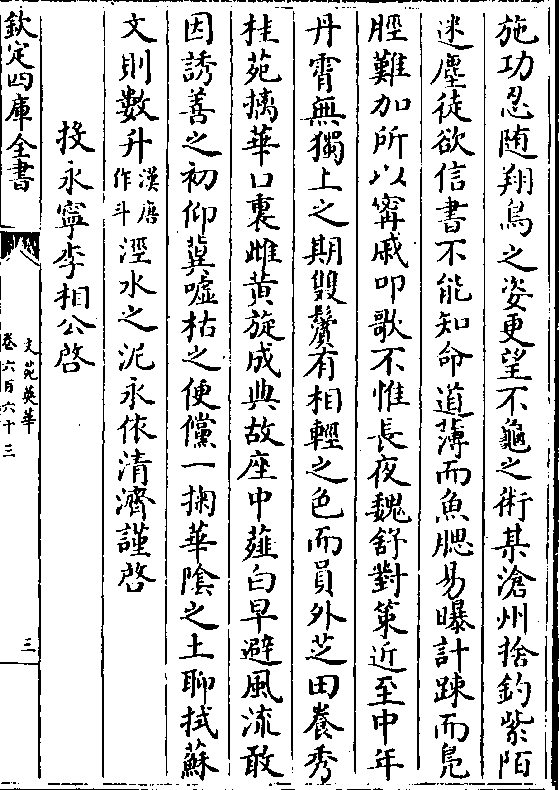 施功忍随翔鳥之姿更望不龜之術某滄州捨釣紫陌
迷塵徒欲信書不能知命道薄而魚腮易曝計踈而鳬
脛難加所以甯戚叩歌不惟長夜魏舒對策近至中年
丹霄無獨上之期雙鬢有相輕之色而員外芝田養秀
桂苑摛華口裏雌黄旋成典故座中薤白早避風流敢
因誘善之初仰冀噓枯之便儻一掬華陰之土聊拭蘇
文則數升漢唐作斗涇水之泥永依清濟謹啓
投永寧李相公啓
欽定四庫全書
文苑英華
卷六百六十三
三